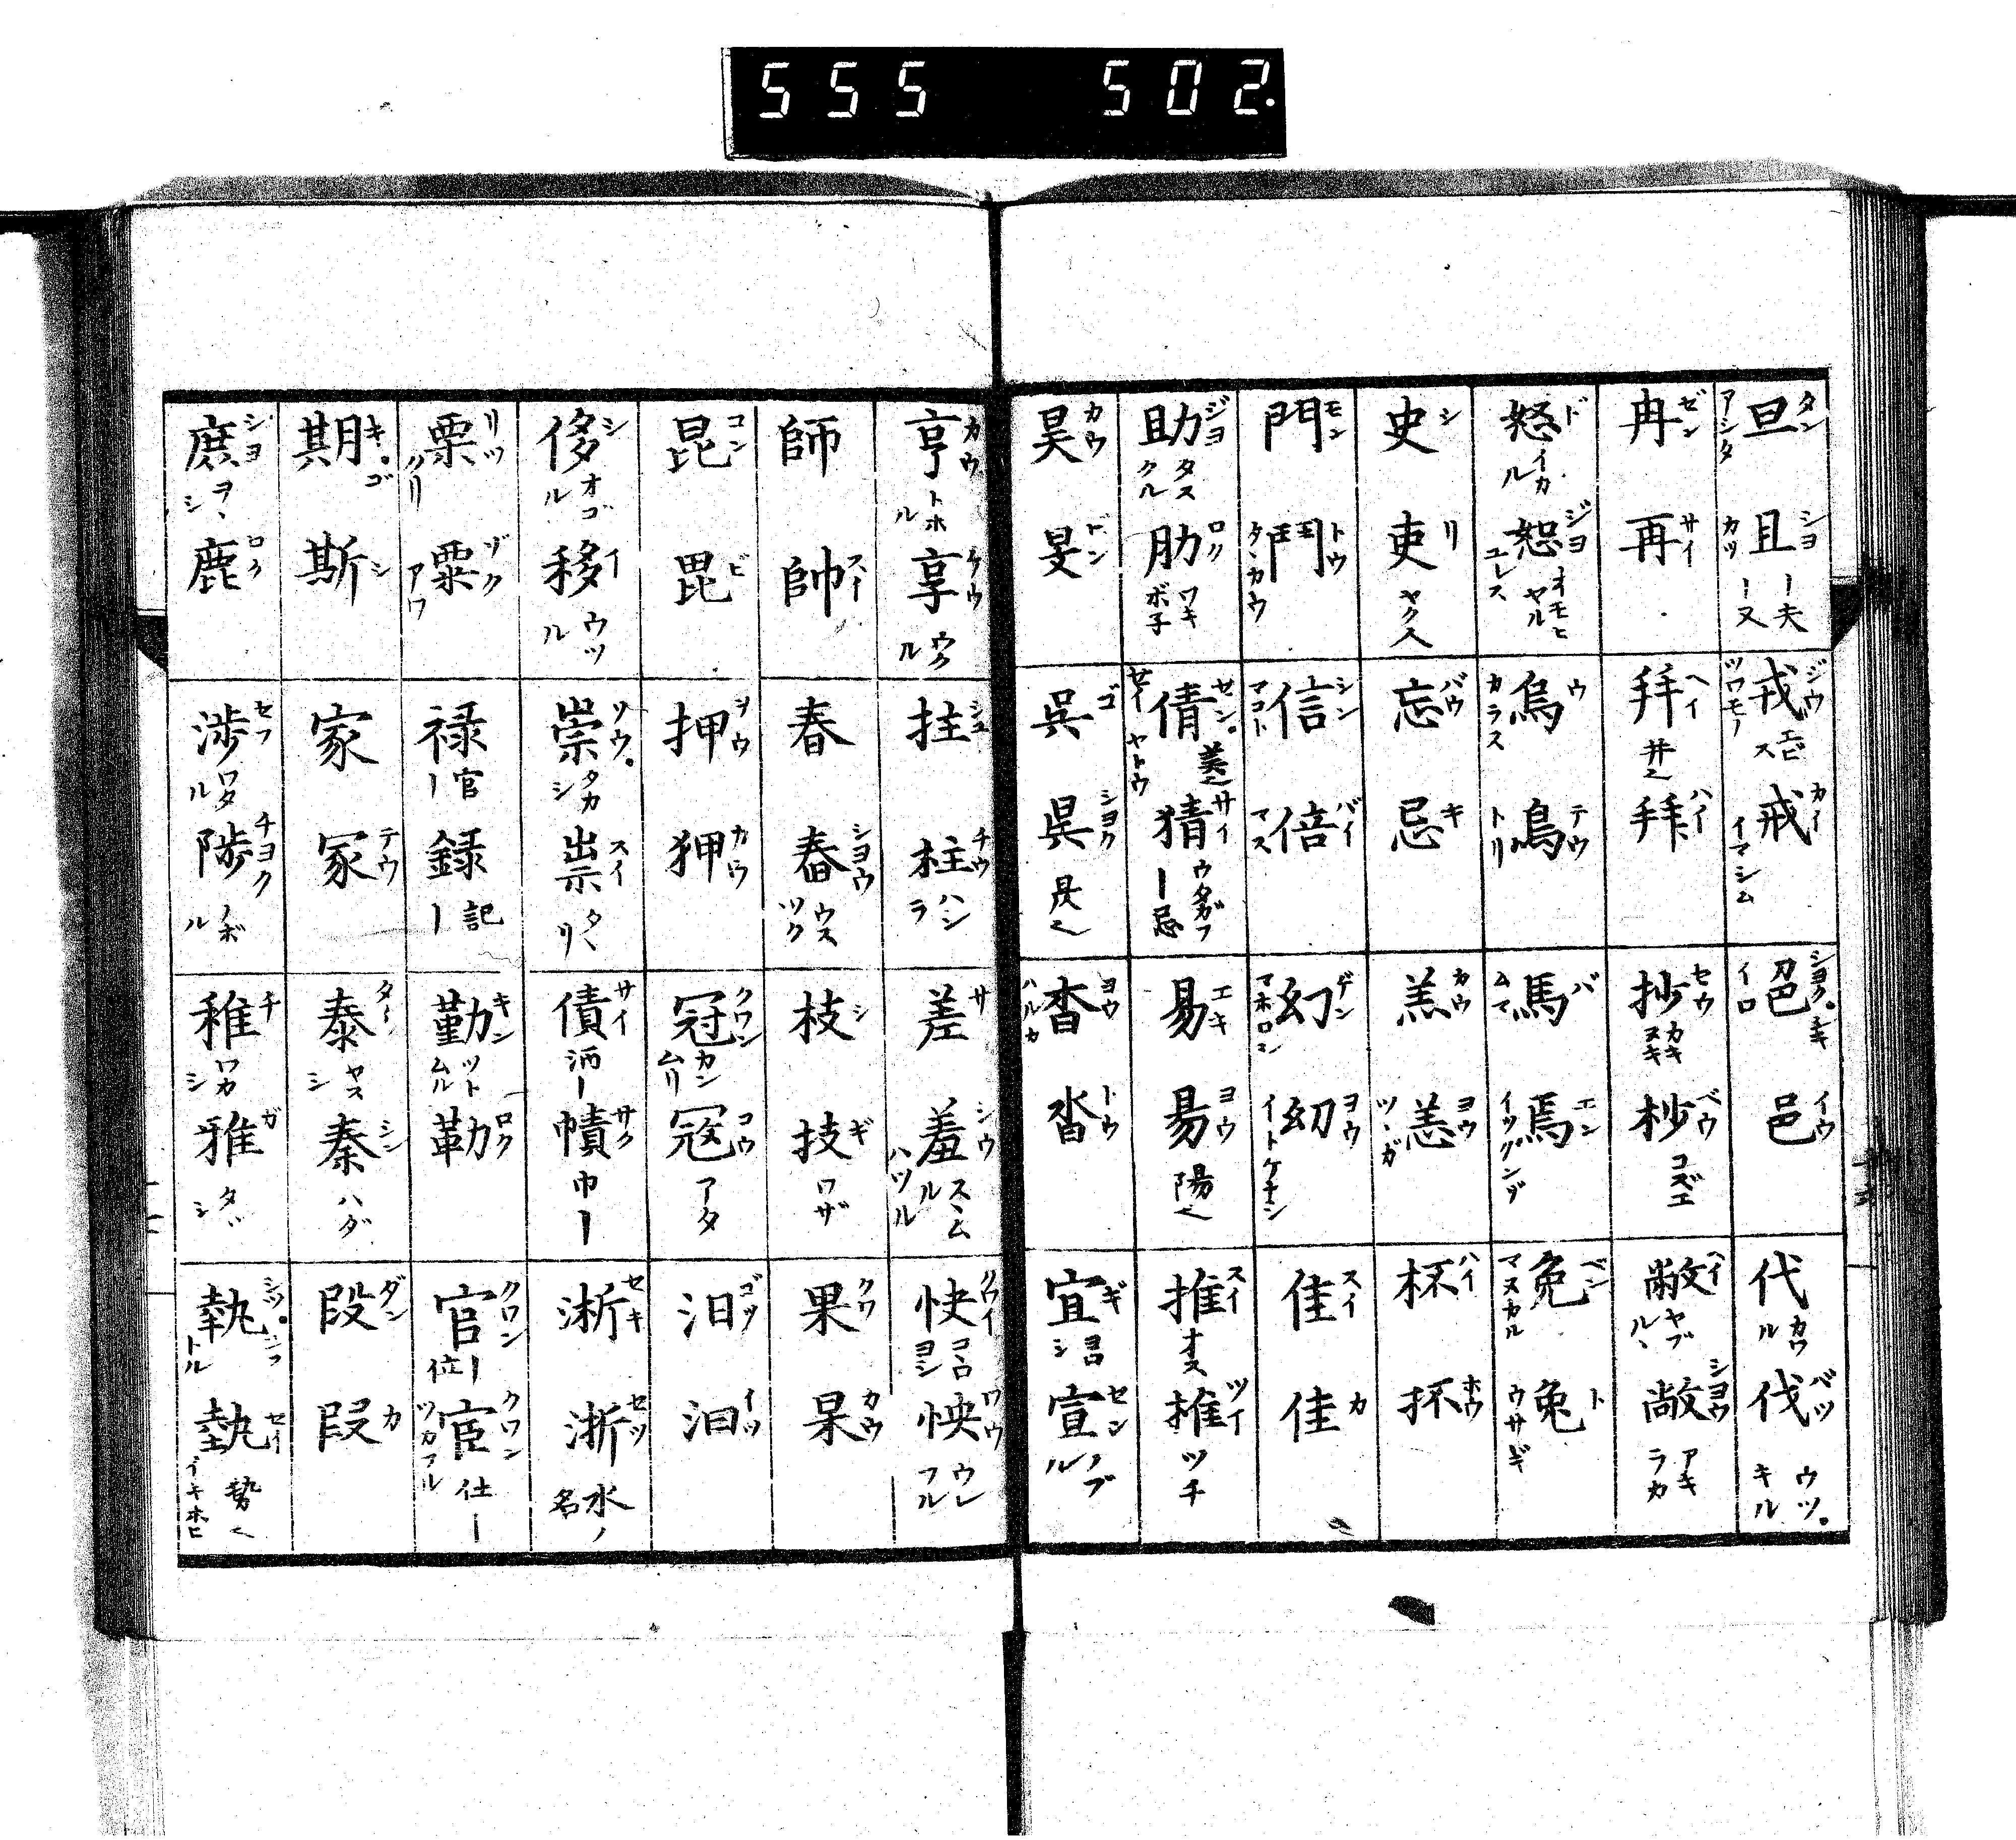 555 502.
旦 タン アシタ 且 シヨ カツ ー夫 ー又
戎 ジウ ツワモノ エビス 戒 カイ イマシム
邑 イウ
代 カワル 伐 バツ ウツ。キル
冉 ゼン 再 サイ
拜 ハイ
抄 セウ 杪 ベウ コズエ
敝 ヘイ ヤブルヽ 敞 シヨウ アキラカ
怒 ド イカル 恕 ジヨ オモヒヤル ユレス
烏 ウ カラス 鳥 テウ トリ
馬 バ ムマ 焉 エン イヅクンゾ
免 ベン マヌカル 兔 ト ウサギ
史 シ 吏 リ ヤク人
忘 バウ 忌 キ
羔 カウ 恙 ヨウ ツヽガ
杯 ハイ 抔 ホウ
門 モン 鬥 トウ タヽカウ
信 シン マコト 倍 バイ マス
幻 ゲン 幼 ヨウ イトケナシ
隹 スイ 佳 カ
助 ジヨ タスクル 肋 ロク ワキボ子
倩 セン。セイ ヤトウ 美 猜 サイ ウタガフ ー忌
易 エキ 昜 ヨウ 陽
推 スイ オス 椎 ツイ ツチ
昊 カウ 旻 ビン
呉 ゴ 昃 シヨク
杳 ヨウ ハルカ 沓 トウ
宜 ギ ヨロシ 宣 セン ノブル
亨 カウ トホル 享 ケウ ウクル
拄 シユ 柱 チウ ハシラ
差 サ 羞 シウ スヽムル ハヅル
快 クワイ コヽロヨシ 怏 ワウ ウレフル
師 帥 スイ
春 舂 シヨウ ウスツク
枝 シ 技 ギ ワザ
果 クワ 杲 カウ
昆 コン 毘 ビ
押 ヲウ 狎 カウ
冠 クワン カンムリ 寇 コウ アタ
汨 コツ 汩 イツ
侈 シ オゴル 移 イ ウツル
崇 ソウ。タカシ 祟 スイ タヽリ
債 サイ 洒ー 幘 サク 巾ー
淅 セキ 浙 セツ 水ノ名
栗 リツ クリ 粟 ゾク アワ
禄 官ー 録 記ー
勤 キン ツトムル 勒 ロク
官 クワン 位ー 宦 クワン 仕ー ツカフル
期 キ。ゴ 斯 シ
家 冢 テウ
泰 タイ ヤスシ 秦 シン ハダ
段 ダン 叚 カ
庶 シヨ ヲヽシ 鹿 ロク
渉 セフ ワタル 陟 チヨク ノボル
稚 チ ワカシ 雅 ガ タヾシ
執 シツ。シフ トル 埶 セイ 勢 イキホヒ